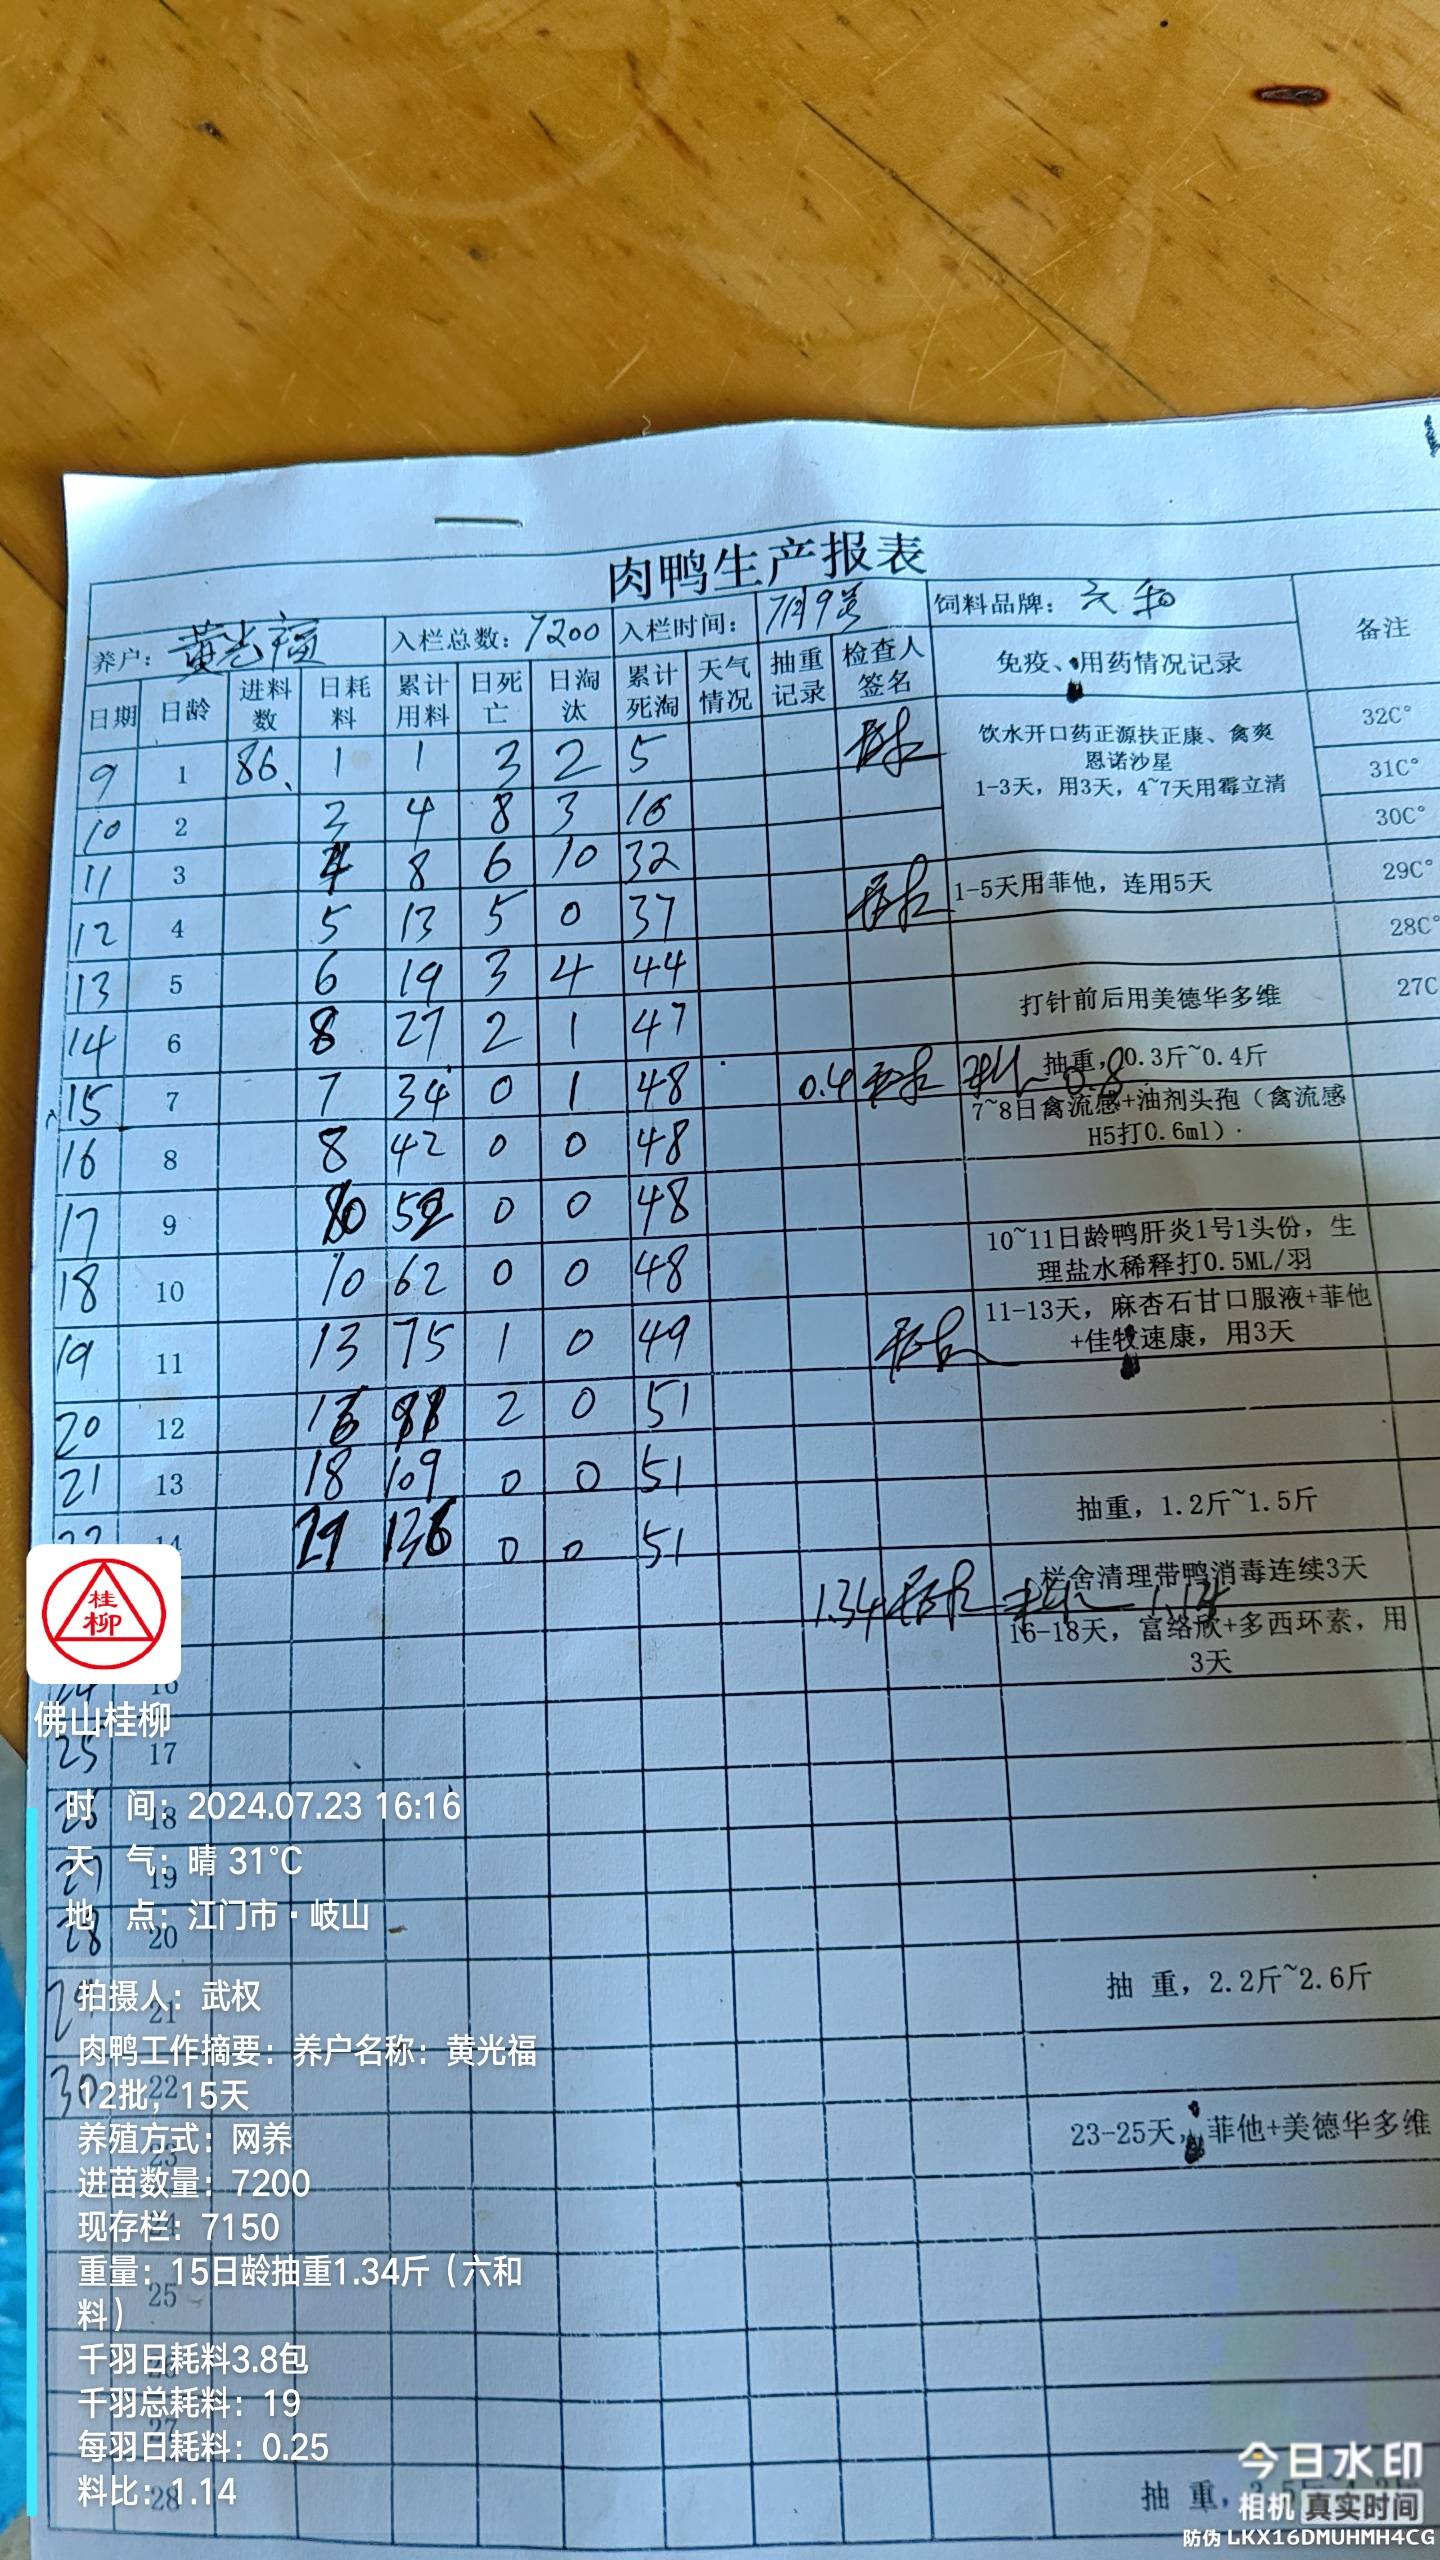 肉鸭生产报表
养户：黄光福 入栏总数：7200 入栏时间：7月9号 饲料品牌：六和 备注
日期 日龄 进料数 日耗料 累计用料 日死亡 日淘汰 累计死淘 天气情况 抽重记录 检查人签名 免疫、用药情况记录
9 1 86、 1 1 3 2 5
饮水开口药正源扶正康、禽爽
恩诺沙星
1-3天，用3天，4~7天用霉立清
32C°
31C°
30C°
10 2 4 8 3 16
11 3 4 8 6 10 32
12 4 5 13 5 0 37
1-5天用菲他，连用5天 29C°
28C°
13 5 6 19 3 4 44
打针前后用美德华多维 27C
14 6 8 27 2 1 47
抽重，0.3斤~0.4斤
15 7 7 34 0 1 48 0.4 0.8
7~8日禽流感+油剂头孢（禽流感
H5打0.6ml）.
16 8 8 42 0 0 48
17 9 10 52 0 0 48
10~11日龄鸭肝炎1号1头份，生
理盐水稀释打0.5ML/羽
18 10 10 62 0 0 48
11-13天，麻杏石甘口服液+菲他
+佳牧速康，用3天
19 11 13 75 1 0 49
20 12 2 0 51
21 13 18 109 0 0 51
抽重，1.2斤~1.5斤
22 14 136 0 0 51
栏舍清理带鸭消毒连续3天
1.34
16-18天，富络欣+多西环素，用
3天
24 16
25 17
26 18
27 19
28 20
29 21
抽 重，2.2斤~2.6斤
30 22
23
23-25天，菲他+美德华多维
24
25
26
27
28
抽 重，
桂
柳
佛山桂柳
时 间：2024.07.23 16:16
天 气：晴 31℃
地 点：江门市·岐山
拍摄人：武权
肉鸭工作摘要：养户名称：黄光福
12批，15天
养殖方式：网养
进苗数量：7200
现存栏：7150
重量：15日龄抽重1.34斤（六和
料）
千羽日耗料3.8包
千羽总耗料：19
每羽日耗料：0.25
料比：1.14
今日水印
相机 真实时间
防伪 LKX16DMUHMH4CG